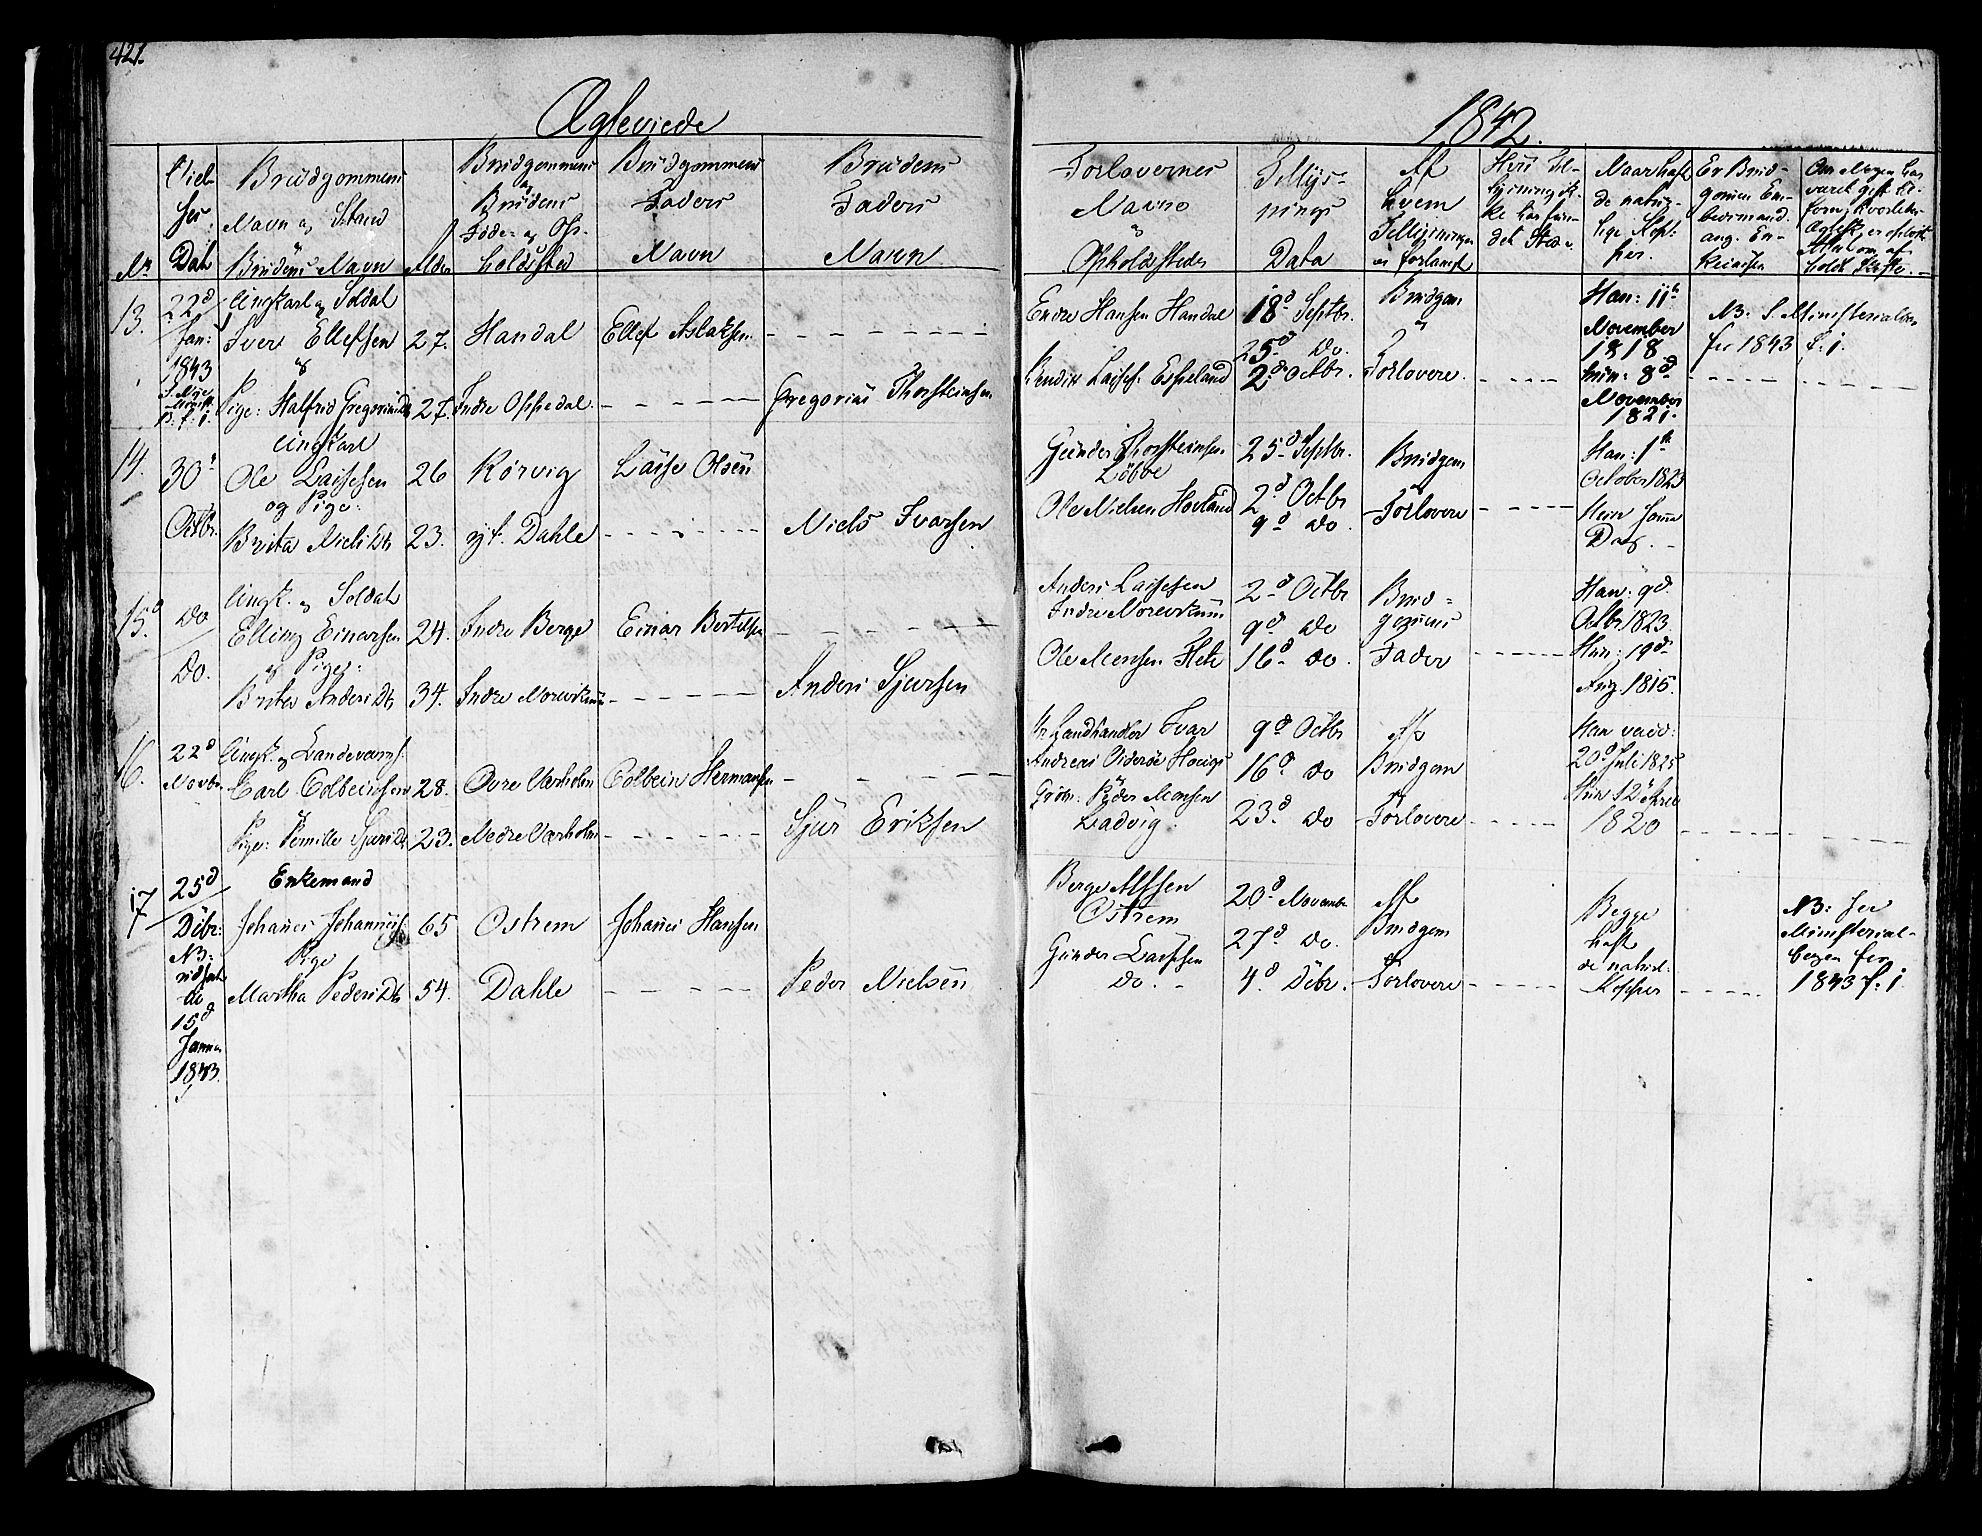 421.
Ægteviede
1842.
Nr.
Viel-
ses
Dat
Brudgommens
Navn og Stand
Brudens Navn
Alder
Brudgommens
og
Brudens
Føde- og Op-
holdsted
Brudgommens
Faders
Navn
Brudens
Faders
Navn
Forlovernes
Navne
og
Opholdsteder
Tillys-
nings
Data
Af
hvem
Tillysningen
er forlangt
Hvis Til-
lysning ik-
ke har fun-
det Sted
Naar havt
de natur-
lige Kop-
per.
Er Brud-
gomen En-
kemand
ang. En-
kekassen
Om Nogen har
været gift til-
forn,
13.
22d
Jan:
1843
Ungkarl og Soldat
Iver Ellefsen
og
Pige: Halfrid Gregorius D.
27.
27.
Handal
Indre Oppedal
Ellef Aslaksen
Gregorius Thorsteinsen
Endre Hansen Handal
Bendix Lasses. Espeland
18d Septbr.
25d Do.
2d Octbr.
Brudgom
og
Forlovere.
Han: 11te
November
1818
hun: 8d
November
1821.
NB: S. Ministerialbog
for 1843 f. 1.
14.
30te
Octbr.
Ungkarl
Ole Lassesen
og Pige:
Brita Niels D.
26
23.
Rørvig
yt. Dahle
Lasse Olsen
Niels Ivarsen
Gunder Thorsteinsen
Løbbe
Ole Nielsen Hovland
25d Septbr.
2d Octbr
9d Do.
Brudgom
og
Forlovere
Han: 1te
October 1823
Hun samme
Dag.
15d.
Do
Do.
Ungk. og Soldat
Elling Einarsen
og Pige:
Brites Anders D.
24.
34.
Indre Berge
Indre Morevknun
Einar Bertelsen
Anders Sjursen
Anders Lassesen
Indre Morevknun
Ole Monsen Flete
2d Octbr
9d Do
16d Do.
Brud-
gomens
Fader
Han: 9d
Octbr 1823.
Hun: 19d
Aug. 1815.
16.
22d
Novbr.
Ungk. og Landeværnsf.
Carl Colbeinsen
og
Pige: Pernille Sjurs D.
28.
23.
Øvre Værholm
Nedre Værholm
Colbein Hermansen
Sjur Eriksen
Hr. Landhandler Ivar
Andreas
Peder Monsen
Ladvig
9d Octbr
16d Do
23d Do
Af
Brudgom
og
Forlovere
Han vacc:
20d Juli 1825
Hun 12
1820
17
25d
Debr:
NB:
viet
do
15d
Januar
1843.
Enkemand
Johanes Johannes.
Pige
Martha Peders D.
65
54.
Ostrem
Dahle
Johanes Hansen
Peder Nielsen
Berge Alfsen
Ostrem
Gunder Lassesen
do.
20d November
27d Do.
4d Debr.
Af
Brudgom
og
Forlovere
Begge
haft
de naturl:
Kopper
NB: See
Ministerial-
bogen for
1843 f. 1.